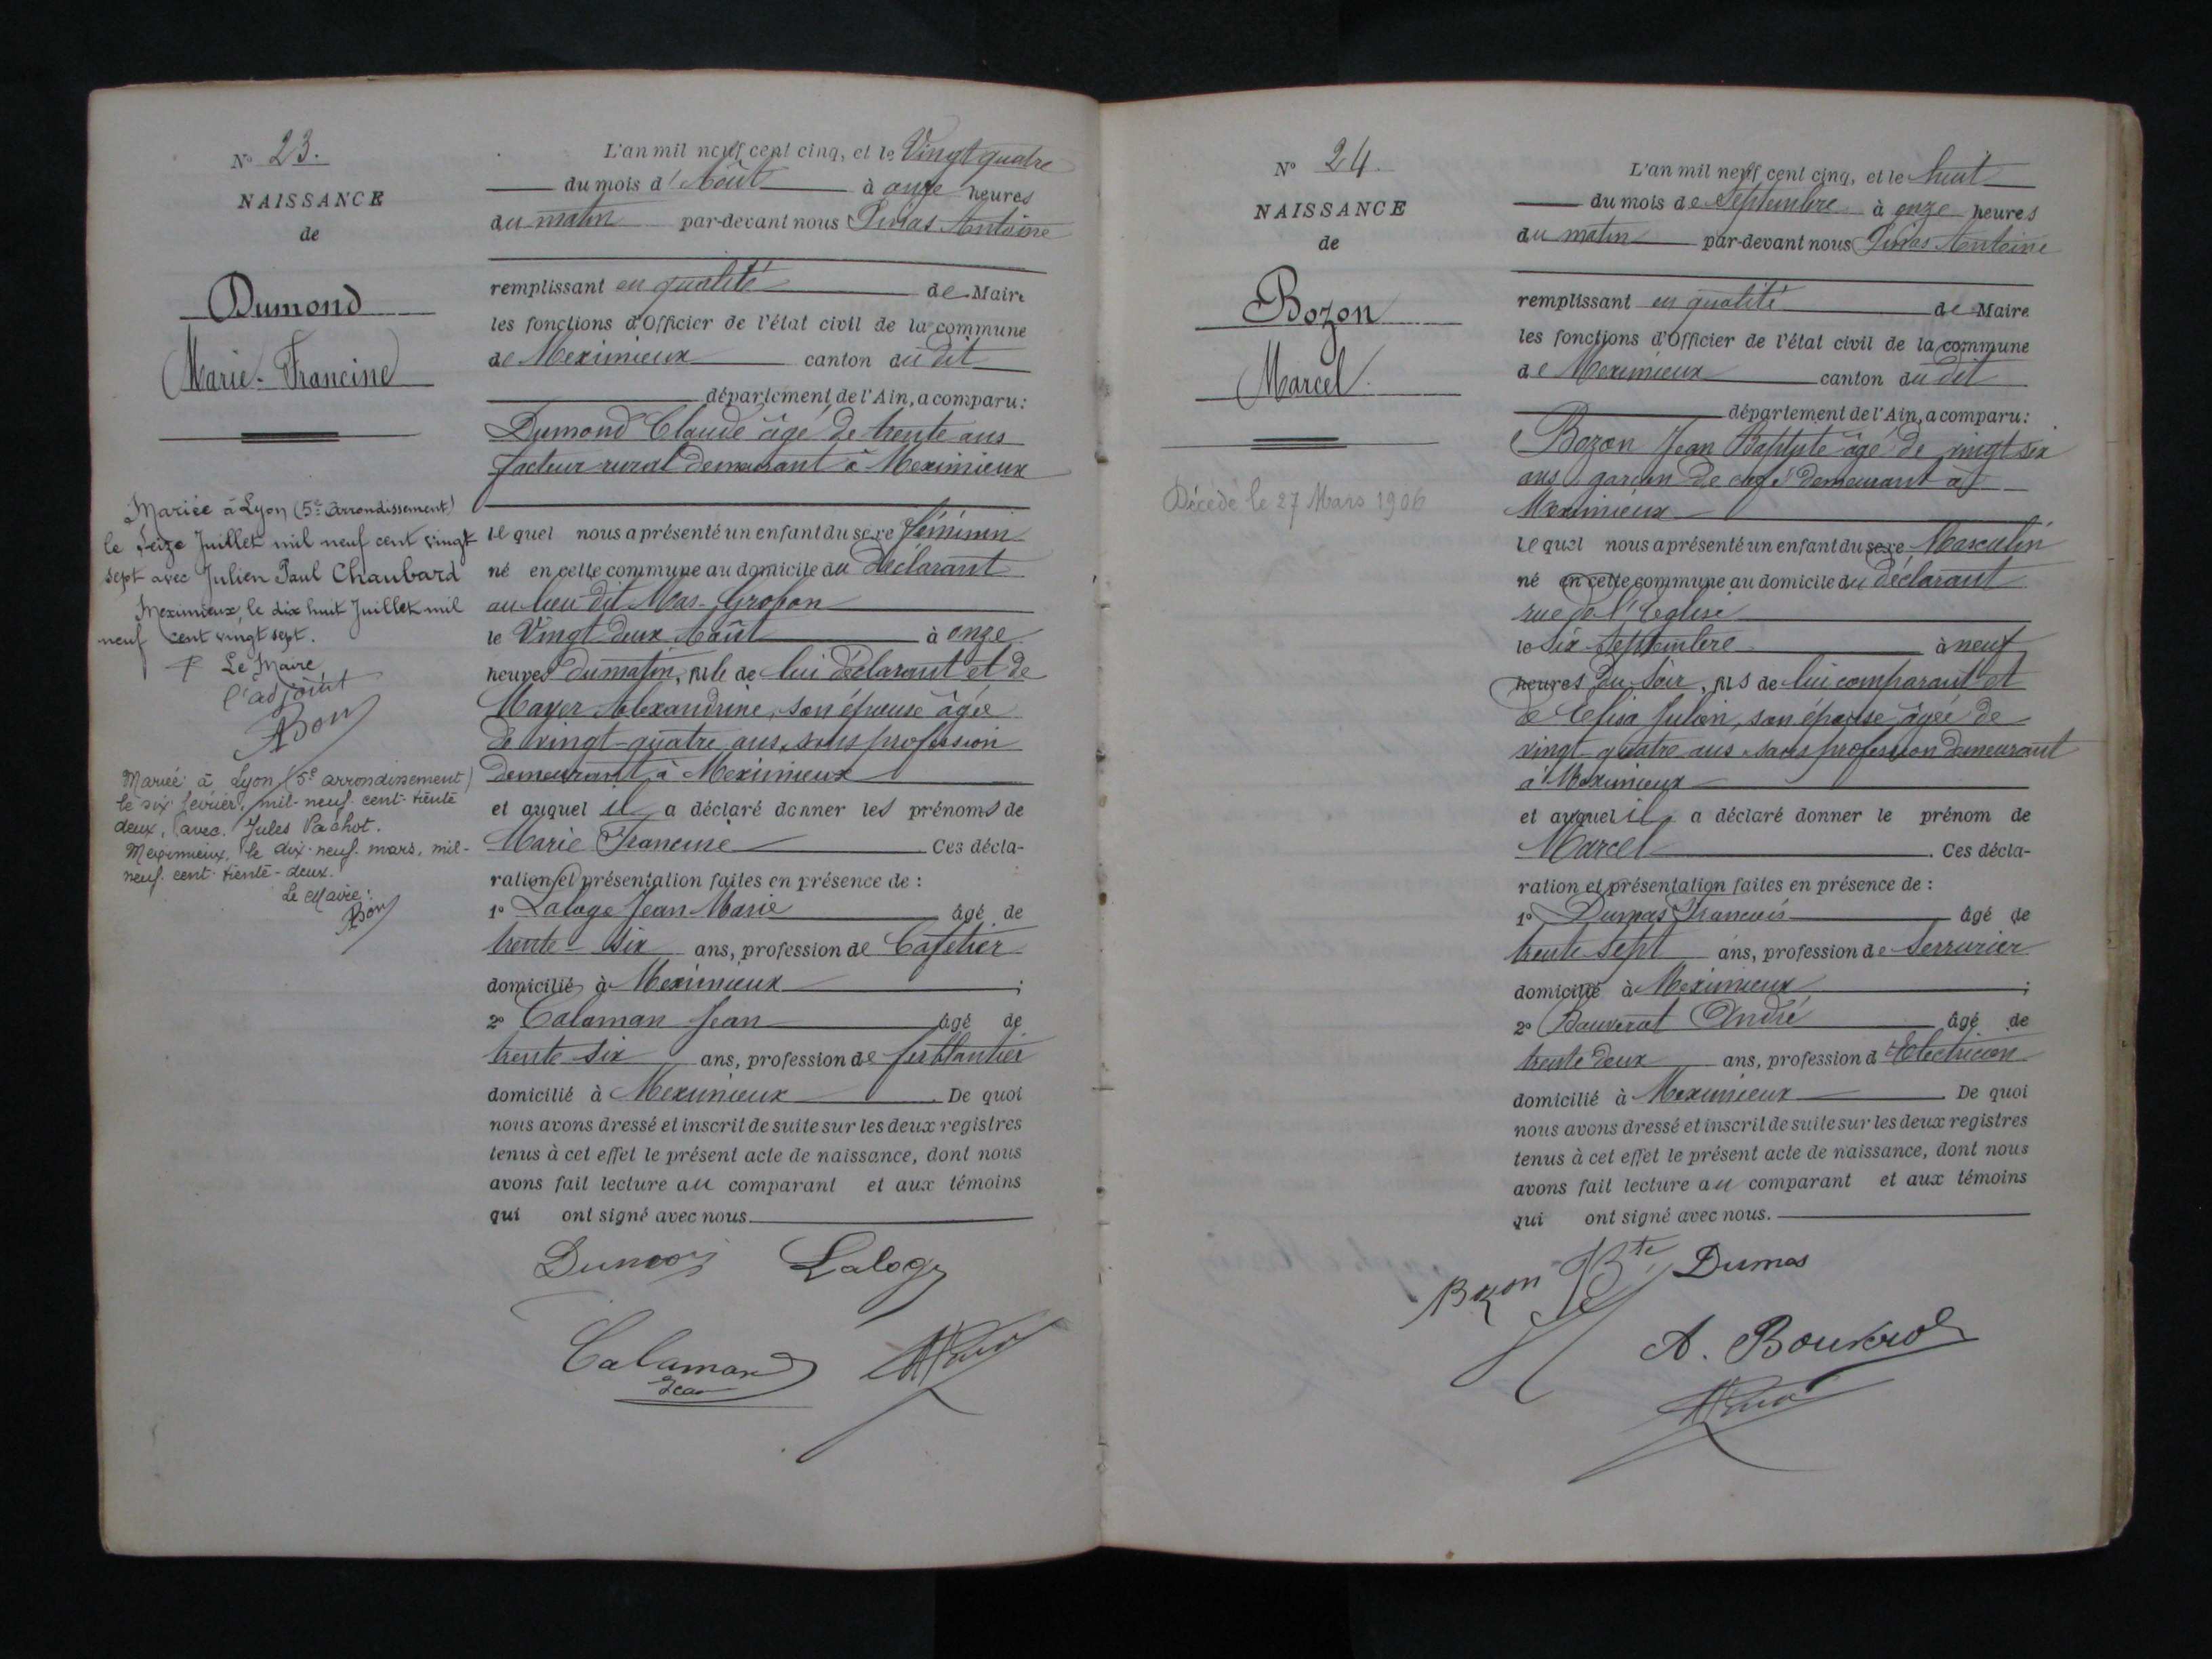 N° 23.
NAISSANCE
de
Dumond
Marie-Francine
Mariée à Lyon (5e Arrondissement)
le seize Juillet mil neuf cent vingt
sept avec Julien Paul Chaubard
Meximieux, le dix huit Juillet mil
neuf cent vingt sept.
Le Maire
l'adjoint
ABon
Mariée à Lyon (5e arrondissement)
le six février, mil-neuf-cent-trente
deux, avec Jules Pachot.
Meximieux, le dix-neuf mars, mil-
neuf-cent-trente-deux.
Le Maire:
ABon
L'an mil neuf cent cinq, et le Vingt quatre
du mois d'Août à onze heures
du matin par-devant nous Antoine
remplissant en qualité de Maire
les fonctions d'Officier de l'état civil de la commune
de Meximieux canton du dit
département de l'Ain, a comparu:
Dumond Claude âgé de trente ans
facteur rural demeurant à Meximieux
lequel nous a présenté un enfant du sexe féminin
né en cette commune au domicile du déclarant
au lieu dit Mas-
le Vingt deux Août à onze
heures du matin, fille de lui déclarant et de
Mayer Alexandrine, son épouse âgée
de vingt-quatre ans, sans profession
demeurant à Meximieux
et auquel il a déclaré donner les prénoms de
Marie Francine Ces décla-
ration et présentation faites en présence de:
1° Laloge Jean-Marie âgé de
trente-six ans, profession de Cafetier
domicilié à Meximieux;
2° Calaman Jean âgé de
trente six ans, profession de ferblantier
domicilié à Meximieux. De quoi
nous avons dressé et inscrit de suite sur les deux registres
tenus à cet effet le présent acte de naissance, dont nous
avons fait lecture au comparant et aux témoins
qui ont signé avec nous.
Dumond Laloge
Calaman
Jean
N° 24.
NAISSANCE
de
Bozon
Marcel
Décédé le 27 Mars 1906
L'an mil neuf cent cinq, et le huit
du mois de Septembre à onze heures
du matin par-devant nous Antoine
remplissant en qualité de Maire
les fonctions d'Officier de l'état civil de la commune
de Meximieux canton du dit
département de l'Ain, a comparu:
Bozon Jean Baptiste âgé de vingt six
ans garçon de café demeurant à
Meximieux
lequel nous a présenté un enfant du sexe Masculin
né en cette commune au domicile du déclarant
rue de l'Eglise
le six Septembre à neuf
heures du soir, fils de lui comparant et
de Elisa Julien, son épouse âgée de
vingt-quatre ans sans profession demeurant
à Meximieux
et auquel il a déclaré donner le prénom de
Marcel. Ces décla-
ration et présentation faites en présence de:
1° Dumas François âgé de
trente sept ans, profession de Serrurier
domicilié à Meximieux;
2° Bouverat André âgé de
trente deux ans, profession d'Electricien
domicilié à Meximieux. De quoi
nous avons dressé et inscrit de suite sur les deux registres
tenus à cet effet le présent acte de naissance, dont nous
avons fait lecture au comparant et aux témoins
qui ont signé avec nous.
Bozon Bte Dumas
A. Bouverat